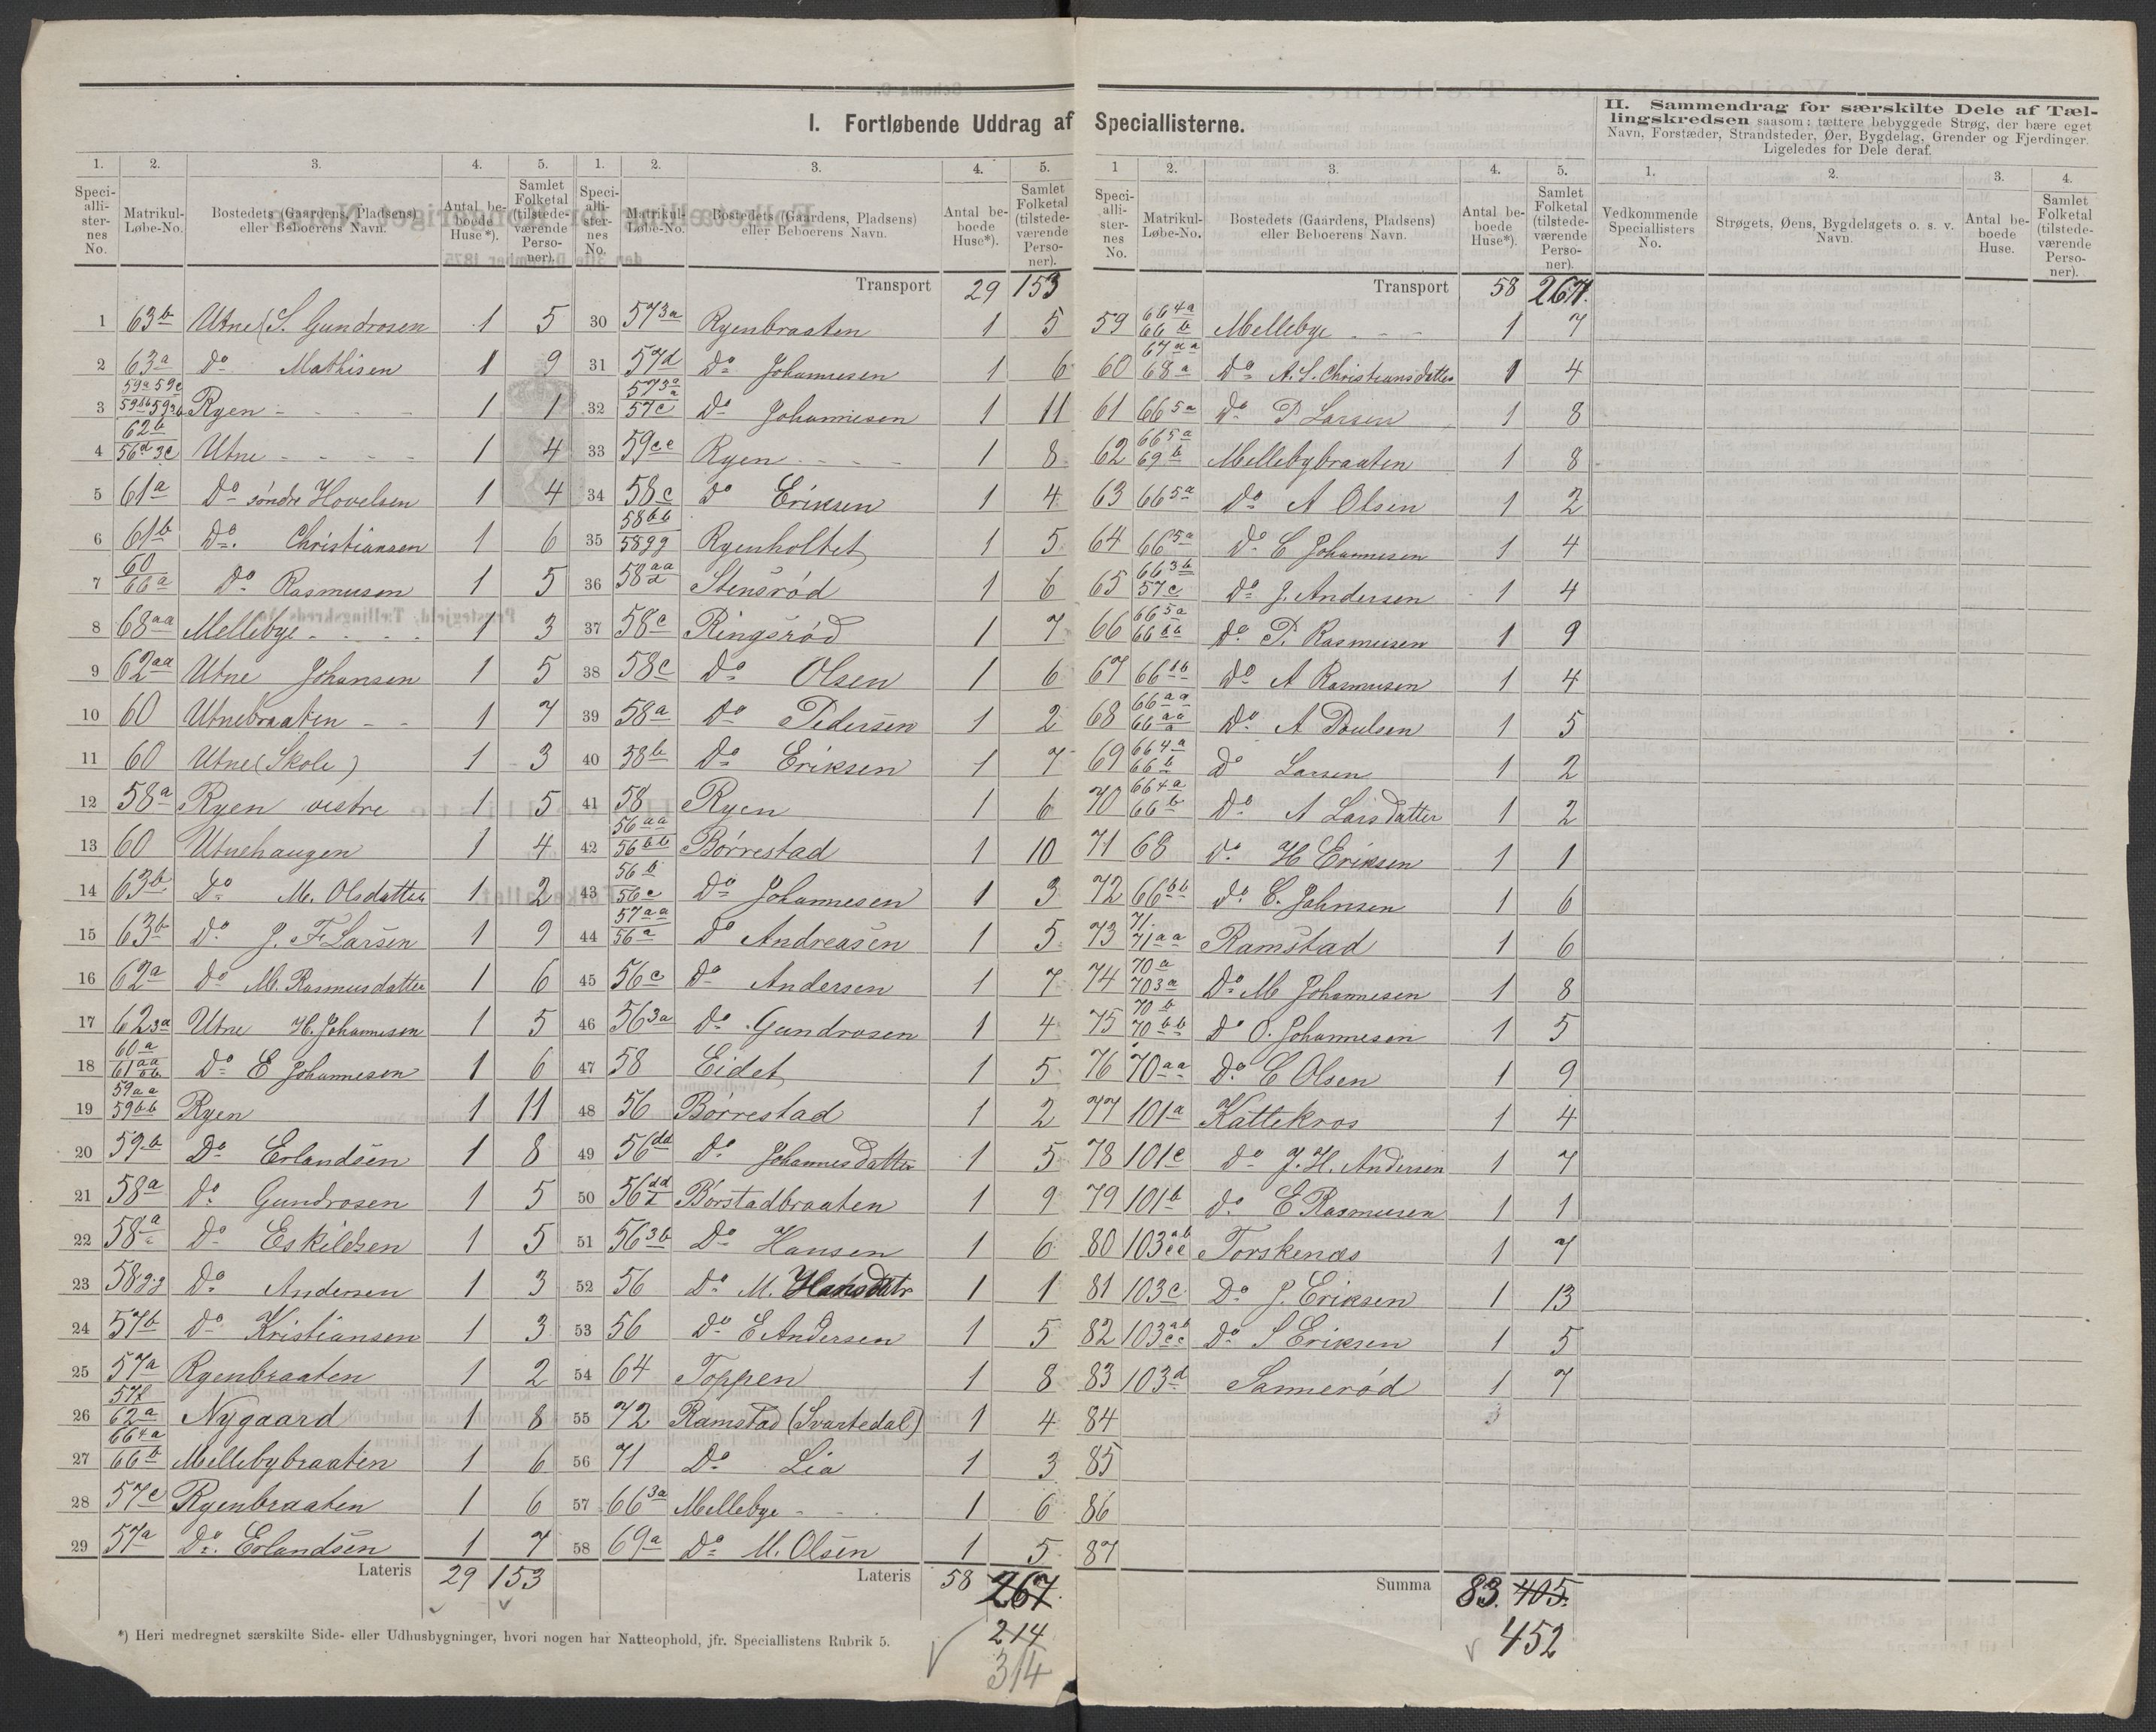 I. Fortløbende Uddrag af Speciallisterne.
II. Sammendrag for særskilte Dele af Tællingskredsen saasom: tættere bebyggede Strøg, der bære eget
Navn, Forstæder, Strandsteder, Øer, Bygdelag, Grender og Fjerdinger.
Ligeledes for Dele deraf.
1. 2. 3. 4. 5.
Speciallisternes No. Matrikul-Løbe-No. Bostedets (Gaardens, Pladsens) eller Beboerens Navn. Antal beboede Huse*). Samlet Folketal (tilstedeværende Personer).
1 63b Utne (S. Gundrosen 1 5
2 63a Do Mathisen 1 9
3 59a 59c 59bb 59ab Ryen 1 1
4 62b 56d 3c Utne 1 4
5 61a Do søndre Hovelsen 1 4
6 61b Do. Christiansen 1 6
7 60 66a Do Rasmusen 1 5
8 68aa Mellebye 1 3
9 62aa Utne Johansen 1 5
10 60 Utnebraaten 1 7
11 60 Utne (Skole) 1 3
12 58a Ryen vestre 1 5
13 60 Utnehaugen 1 4
14 63b Do M. Olsdatter 1 2
15 63b Do J. F Larsen 1 9
16 62a Do M. Rasmusdatter 1 6
17 62 3a Utne H. Johannesen 1 5
18 60a 61aa bb Do E Johannesen 1 6
19 59aa 59bb Ryen 1 11
20 59b Do Erlandsen 1 8
21 58a Do Gundrosen 1 5
22 58a Do Eskildsen 1 5
23 58gg Do Andersen 1 3
24 57b Do Kristiansen 1 3
25 57a Ryenbraaten 1 2
26 57f 62a Nygaard 1 8
27 66 4a 66b Mellebybraaten 1 6
28 57c Ryenbraaten 1 6
29 57a Do. Erlandsen 1 7
Lateris 29 153
1. 2. 3. 4. 5.
Speciallisternes No. Matrikul-Løbe-No. Bostedets (Gaardens, Pladsens) eller Beboerens Navn. Antal beboede Huse*). Samlet Folketal (tilstedeværende Personer).
Transport 29 153
30 57 3a Ryenbraaten 1 5
31 57d Do Johannesen 1 6
32 57 3a 57c Do Johannesen 1 11
33 59cc Ryen 1 8
34 58c Do Eriksen 1 4
35 58bb 58gg Ryenholtet 1 5
36 58aa a Stensrød 1 6
37 58c Ringsrød 1 7
38 58c Do Olsen 1 6
39 58a Do Pedersen 1 2
40 58b Do Eriksen 1 7
41 58 Ryen 1 6
42 56aa 56bb Børrestad 1 10
43 56b 56c Do Johannesen 1 3
44 57aa 56a Do Andreasen 1 5
45 56c Do Andersen 1 7
46 56 3a Do Gundrosen 1 4
47 58 Eidet 1 5
48 56 Børrestad 1 2
49 56dd Do Johannesdatter 1 5
50 56dd Børstadbraaten 1 9
51 56 3b Do Hansen 1 6
52 56 Do M. Hansdatr 1 1
53 56 Do E Andersen 1 5
54 64 Toppen 1 8
55 72 Ramstad (Svartedal) 1 4
56 71 Do Lia 1 3
57 66 3a Mellebye 1 6
58 69a Do M. Olsen 1 5
Lateris 58 267
214
314
1 2. 3. 4. 5.
Speciallisternes No. Matrikul-Løbe-No. Bostedets (Gaardens, Pladsens) eller Beboerens Navn. Antal beboede Huse*). Samlet Folketal (tilstedeværende Personer).
Transport 58 267.
59 66 4a 66 b Mellebye 1 7
60 67aa 68a Do A. S. Christiansdatter 1 4
61 66 5a Do P Larsen 1 8
62 66 5a 69 b Mellebybraaten 1 8
63 66 5a Do A Olsen 1 2
64 66 5a Do C Johannesen 1 4
65 66 3b 57c Do J. Andersen 1 4
66 66 5a 66bb Do P. Rasmusen 1 9
67 66 1b Do A Rasmusen 1 4
68 66aa 66aa Do A Poulsen 1 5
69 66 4a 66 b Do Larsen 1 2
70 66 4a 66 b Do A Larsdatter 1 2
71 68 Do H Eriksen 1 1
72 66bb Do C. Johnsen 1 6
73 71. 71aa Ramstad 1 6
74 70a 70 3a Do M Johannesen 1 8
75 70 b 70 bb Do O. Johannesen 1 5
76 70aa Do C Olsen 1 9
77 101a Kattekros 1 4
78 101c Do J. H. Andersen 1 7
79 101b Do E Rasmusen 1 1
80 103ab cc Torskenæs 1 7
81 103c Do J. Eriksen 1 13
82 103ab cc Do S Eriksen 1 5
83 103d Sannerød 1 7
84
85
86
87
Summa 83. 405.
452
1. 2. 3. 4.
Vedkommende Speciallisters No. Strøgets, Øens, Bygdelagets o. s. v. Navn. Antal beboede Huse. Samlet Folketal (tilstedeværende Personer).
*) Heri medregnet særskilte Side- eller Udhusbygninger, hvori nogen har Natteophold, jfr. Speciallistens Rubrik 5.